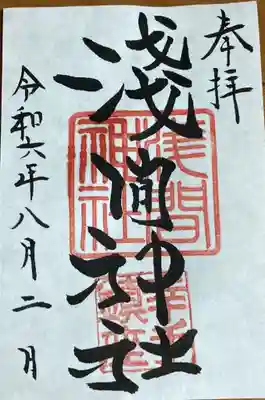 奉拝
淺間神社
淺間神社
令和六年八月二日